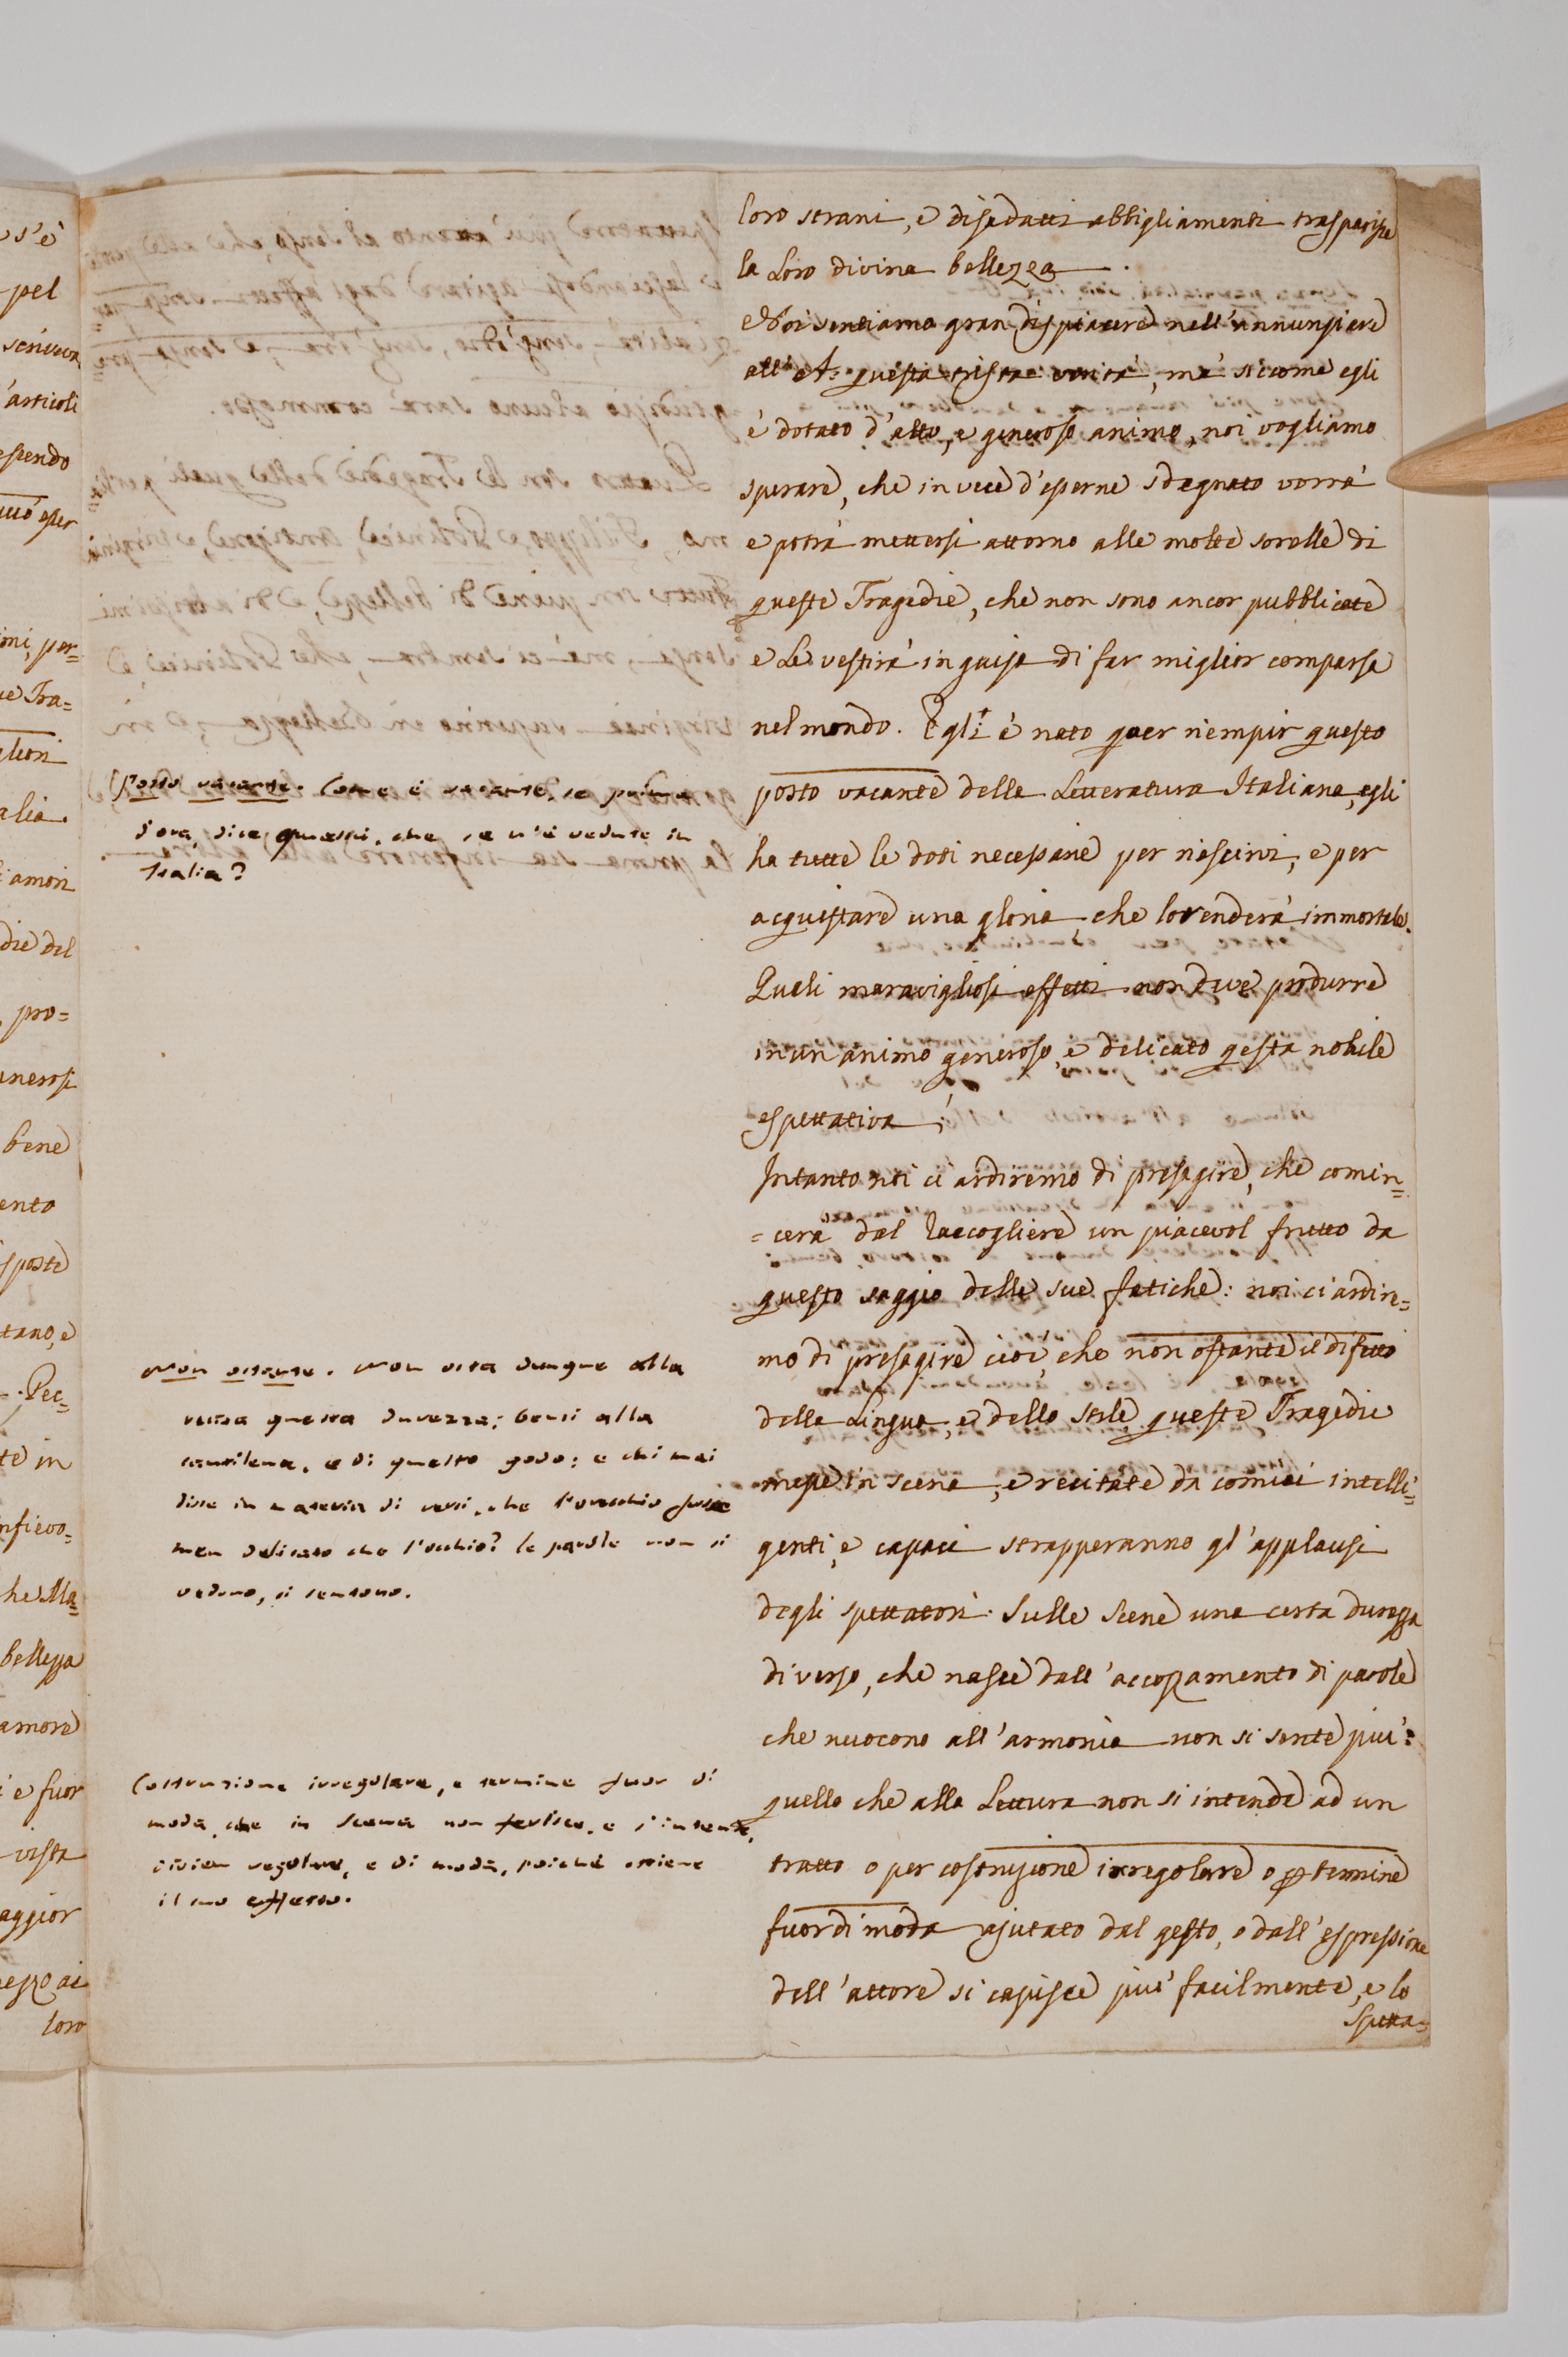 loro strani, e disadatti abbigliamenti trasparisce
la Loro divina bellezza.
Noi sentiamo gran dispiacere nell'annunziare
all'A: questa trista verità, mà siccome egli
è dotato d'alto, e generoso animo, noi vogliamo
sperare, che in vece d'esserne sdegnato vorrà
e potrà mettersi attorno alle molte sorelle di
queste Tragedie, che non sono ancor pubblicate
e Le vestirà in guisa di far miglior comparsa
nel mondo. Egli è nato per riempir questo
posto vacante della Letteratura Italiana, egli
ha tutte le doti necessarie per riescirvi, e per
acquistare una gloria, che lo renderà immortale.
Quali maravigliosi effetti non deve produrre
in un animo generoso, e delicato qesta nobile
espettativa;
Intanto noi ci ardiremo di presagire, che comin=
=cerà dal Raccogliere un piacevol frutto da
questo saggio delle sue fatiche: noi ci ardire=
mo di presagire cioè, che non ostante il difetto
della Lingua, e dello stile, queste Tragedie
messe in scena, e recitate da comici intelli=
genti, e capaci strapperanno gl'applausi
degli spettatori. Sulle Scene una certa durezza
di verso, che nasce dall'accozzamento di parole
che nuocono all'armonia non si sente più:
quello che alla Lettura non si intende ad un
tratto o per costruzione irregolare o per termine
fuor di moda ajutato dal gesto, o dall'espressione
dell'attore si capisce più facilmente, e lo
Spetta=
Posto vacante. Come è vacante, se prima
d'ora, dice questi, che se n'è vedute in
Italia?
Non ostante. Non osta dunque alla
scena questa durezza; bensì alla
cantilena, e di questo godo: e chi mai
disse in materia di versi, che l'orecchio fosse
men delicato che l'occhio? le parole non si
vedono, si sentono.
Costruzione irregolare, e termine fuor di
moda, che in scena non ferisce, e s'intende,
divien regolare, e di moda, poiché ottiene
il suo effetto.
s'è
pel
articoli
essendo
esser
oni, per=
ue Tra=
glior
alia.
amori
die del
pro=
bene
ento
sposte
tano, e
te in
bellezza
amore
i e fuor
vista
aggior
ezzo ai
loro